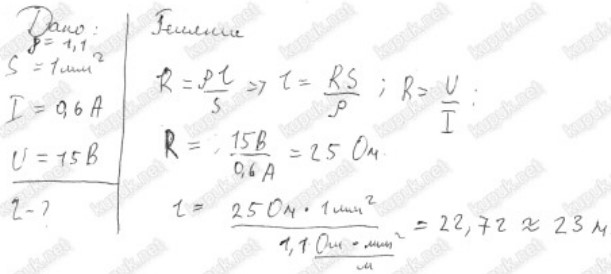 Дано:
ρ = 1,1
S = 1 мм²
I = 0,6 А
U = 15 В
l - ?
Решение
R = ρl/S => l = RS/ρ ; R = U/I ;
R = 15В/0,6А = 25 Ом.
l = 25 Ом · 1 мм² / 1,1 Ом · мм²/м = 22,72 ≈ 23 м